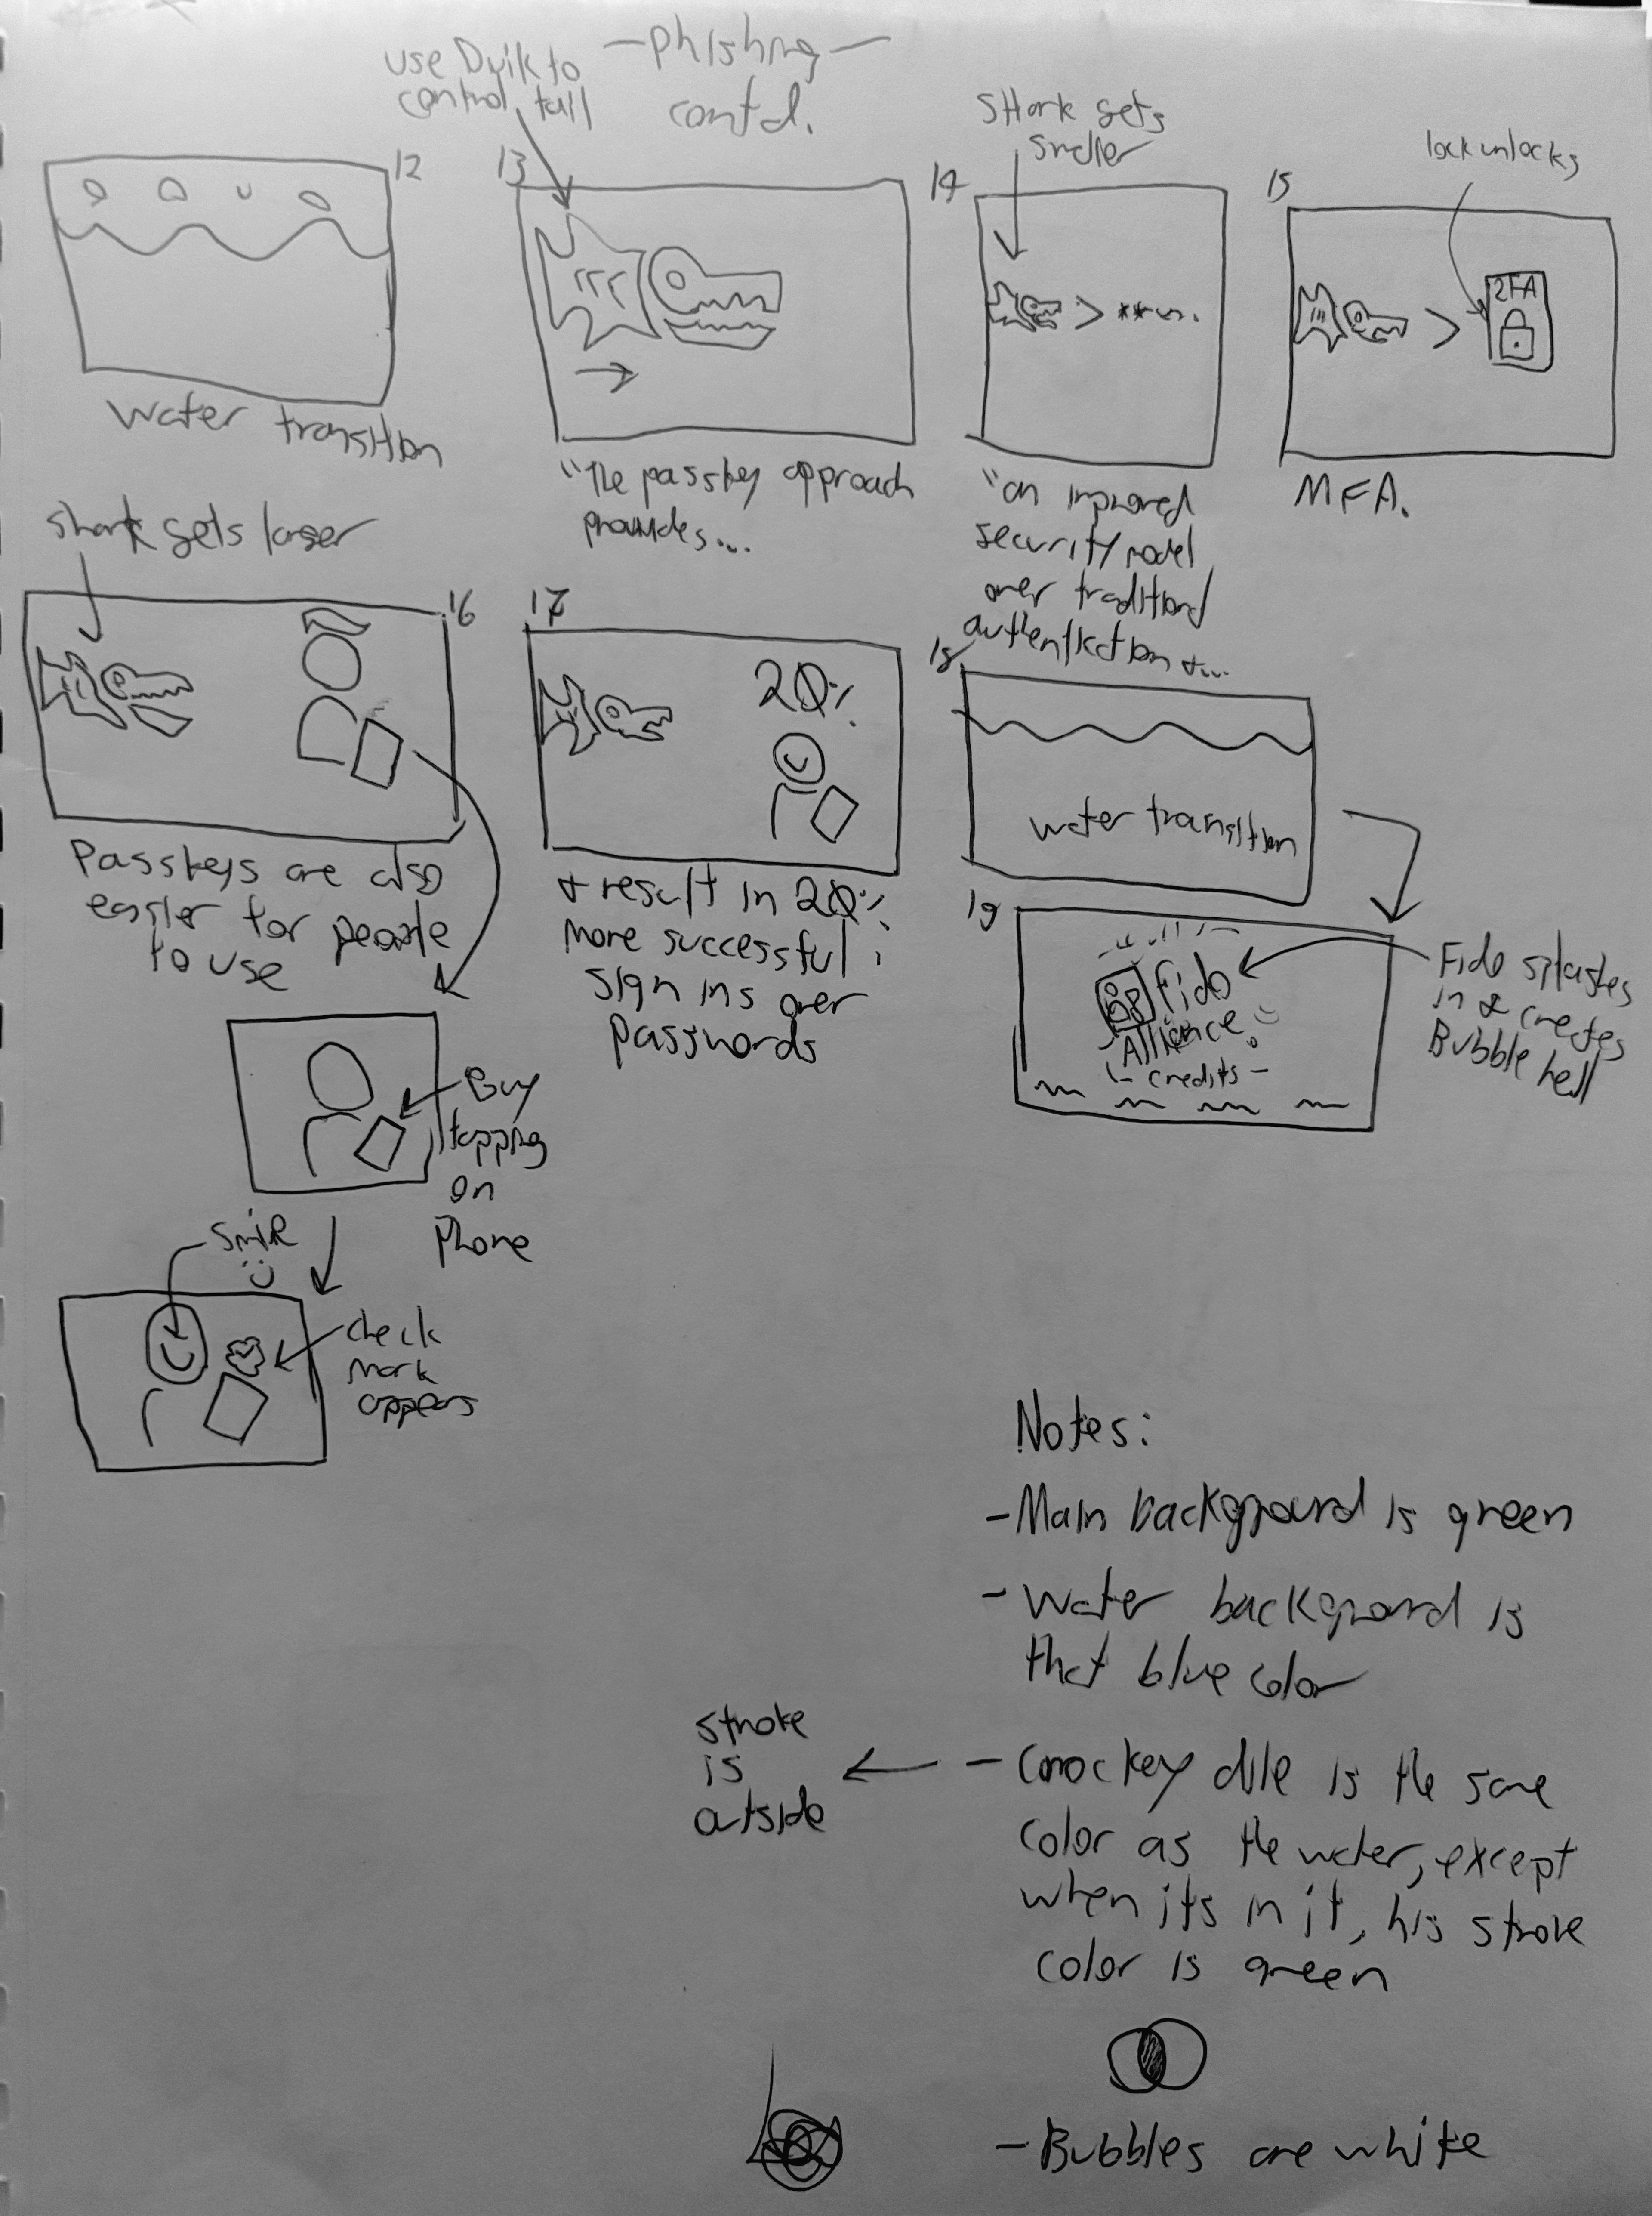 use Duik to
control tail
- phishing -
contd.
12
water transition
13
"The passkey approach
provides...
Shark gets
smaller
14
"an improved
security model
over traditional
authentication +...
lock unlocks
15
2FA
MFA.
shark gets larger
16
Passkeys are also
easier for people
to use
17
20%
+ result in 20%
more successful
sign ins over
passwords
18
water transition
19
Fido
Alliance
- credits -
Fido splashes
in & creates
Bubble hell
Guy
tapping
on
phone
smile
check
mark
appears
Notes:
- Main background is green
- Water background is
that blue color
stroke
is
outside
- Crockey dile is the same
color as the water, except
when its in it, his stroke
color is green
- Bubbles are white